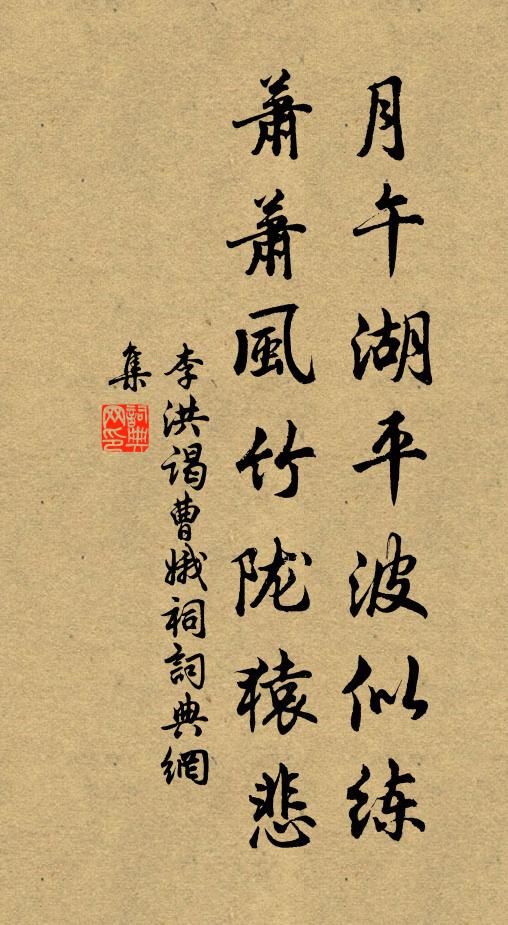 月午湖平波似练
萧萧風竹陇猿悲
李洪谒曹娥祠詞典網
集
詞典网印